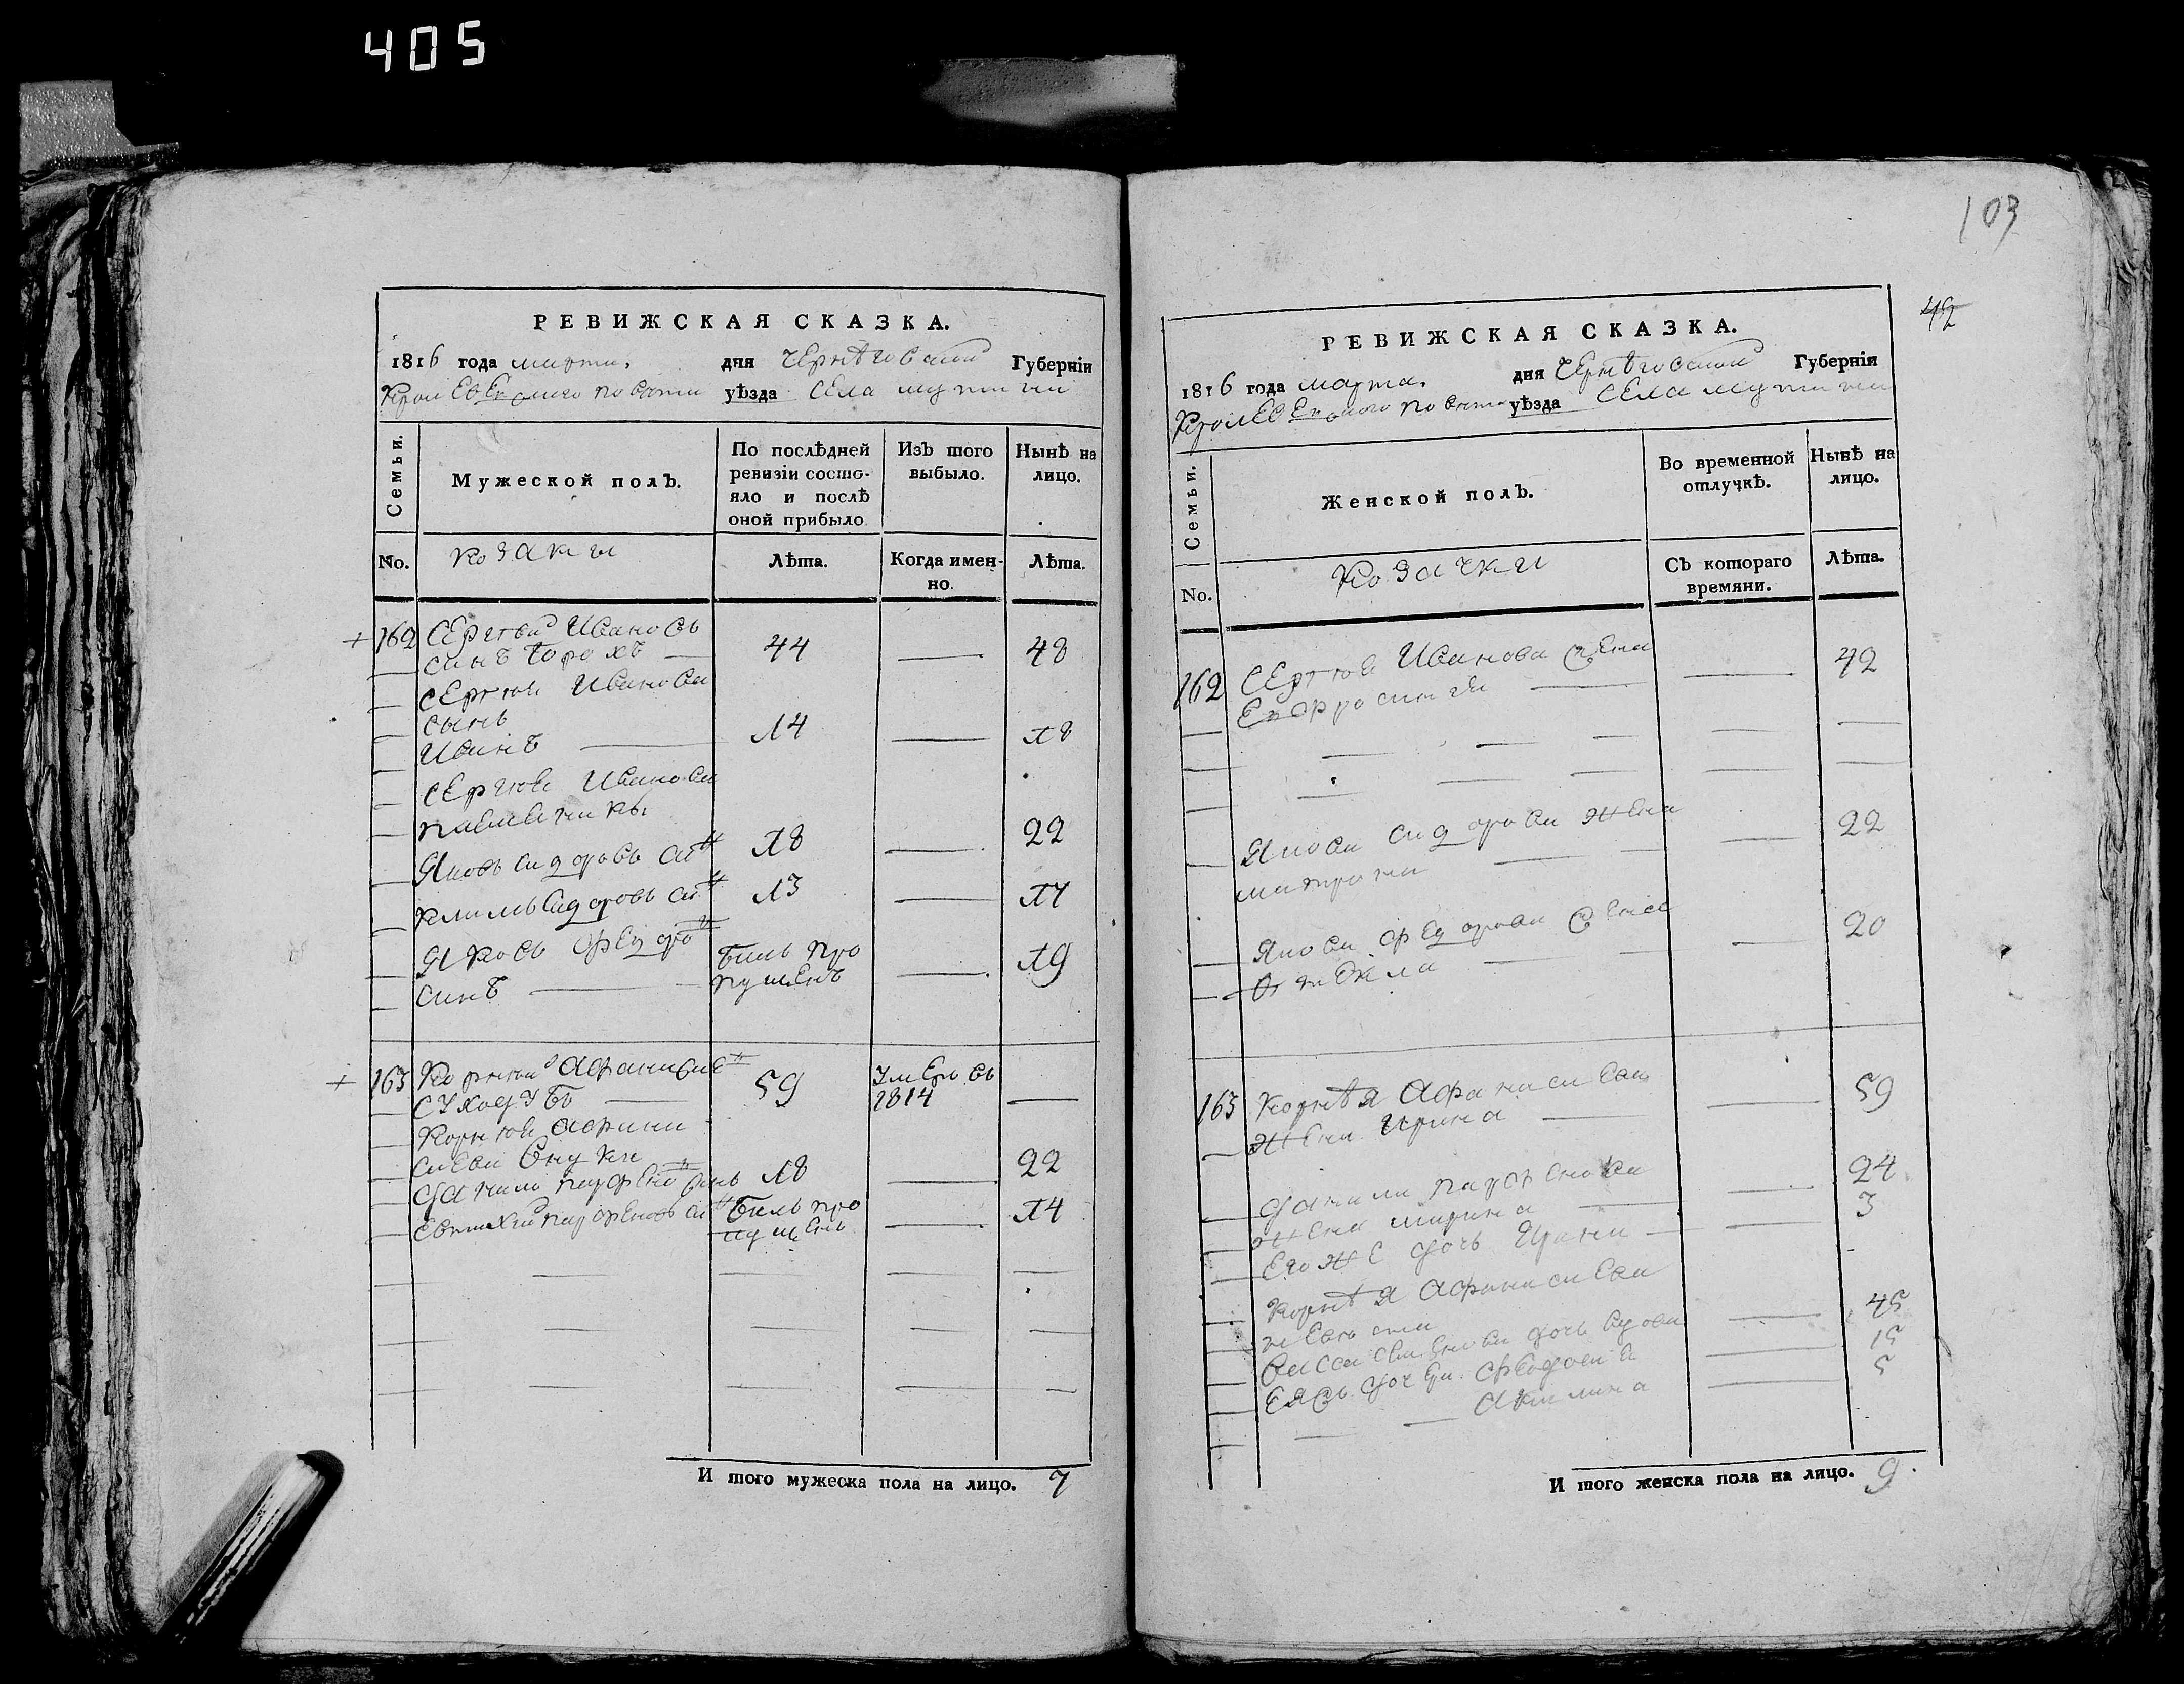 405
РЕВИЖСКАЯ СКАЗКА.
1816 года марта. дня Чернѣговской Губернїи
Кролевецкого повѣта уѣзда Села мутина
Семьи.
Мужеской полЪ.
По послѣдней ревизїи состояло и послѣ оной прибыло.
ИзЪ того выбыло.
Нынѣ на лицо.
No.
козаки
Лѣта.
Когда именно.
Лѣта.
162 Сергѣй Ивановъ
синъ 44 48
Сергѣя Иванова
сынъ
Иванъ 14 18
Сергѣя Иванова
племеники
Яковъ Сидоровъ син 18 22
Климъ Сидоровъ син 13 17
Яковъ Федоро
синъ билъ пропущенъ 19
163 Корнѣй Афанасие
59 умеръ въ 1814
Корнѣя Афана
сиева внуки
Данило Парфеновъ 18 22
Евтихий Парфеновъ син билъ пропущенъ 14
И того мужеска пола на лицо. 7
103
42
РЕВИЖСКАЯ СКАЗКА.
1816 года марта. дня Чернѣговской Губернїи
Кролевецкого повѣта уѣзда Села мутина
Семьи.
Женской полЪ.
Во временной отлучкѣ.
НынѣЪ на лицо.
No.
козачки
СЪ котораго времяни.
Лѣта.
162 Сергѣя Иванова жена
Ефросиния 42
Якова Сидорова жена
матрона 22
Якова Федорова жена
20
163 Корнѣя Афанасиева
жена Ирина 59
Данила Парфенова
жена марина 24
Его же дочь 3
Корнѣя Афанасиева
невѣстка
дочь вдова 45
Ея дочери Феодосия 15
Акилина 5
И того женска пола на лицо. 9.